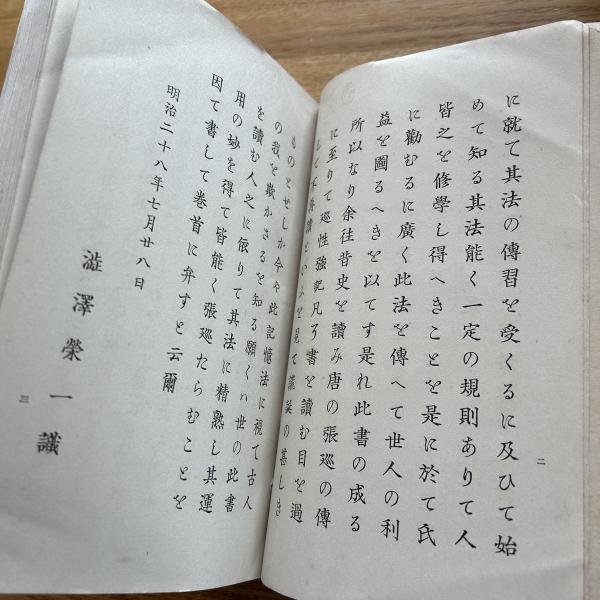 に就て其法の傳習を受くるに及ひて始
めて知る其法能く一定の規則ありて人
皆之を修學し得へきことを是に於て氏
に勸むるに廣く此法を傳へて世人の利
益を圖るへきを以てす是れ此書の成る
所以なり余往昔史を讀み唐の張廵の傳
に至りて廵性強記凡ろ書を讀む目を過
して不再讀といふを見て謊誕の甚しき
ものとせしか今や此記憶法に視て古人
の我を欺かさるを知る願くハ世の此書
を讀む人之に依りて其法に精熟し其運
用の妙を得て皆能く張廵たらむことを
因て書して巻首に弁すと云爾
明治二十八年七月廿八日
澁澤榮一識
二
三